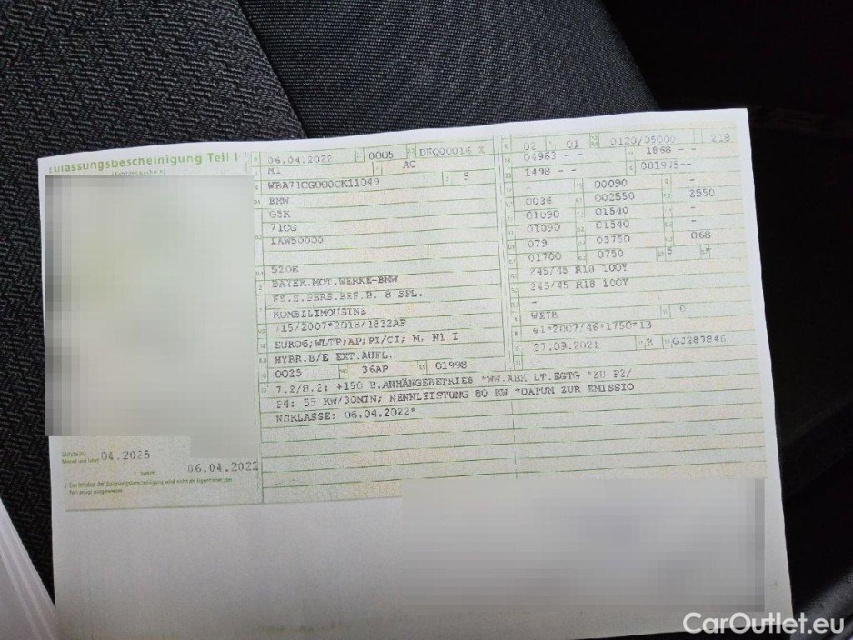 Zulassungsbescheinigung Teil I
06.04.2022 0005
M1 AC
BMW
G5K
71CG
520E
BAYER.MOT.WERKE-BMW
FZ.Z.PERS.BEF.B. 8 SPL.
KOMBILIMOUSINE
715/2007*2018/1832AP
EURO6;WLTP;AP;PI/CI; M, N1 I
HYBR.B/E EXT.AUFL.
0025 36AP 01998
7.2/8.2: +150 B.ANHÄNGEBETRIEB *WW.ABW LT.EGTG *ZU P2/
P4: 55 KW/30MIN; NENNLEISTUNG 80 KW *DATUM ZUR EMISSIO
NSKLASSE: 06.04.2022*
02 01 0120/05000 218
04963 - - 1868 - -
1498 - - 001975--
- 00090 -
0036 002550 2550
01090 01540 -
01090 01540 -
079 03750 068
01700 0750 5
245/45 R18 100Y
245/45 R18 100Y
-
e1*2007/46*1750*13
27.09.2021 K GJ287846
04.2025
06.04.2022
CarOutlet.eu